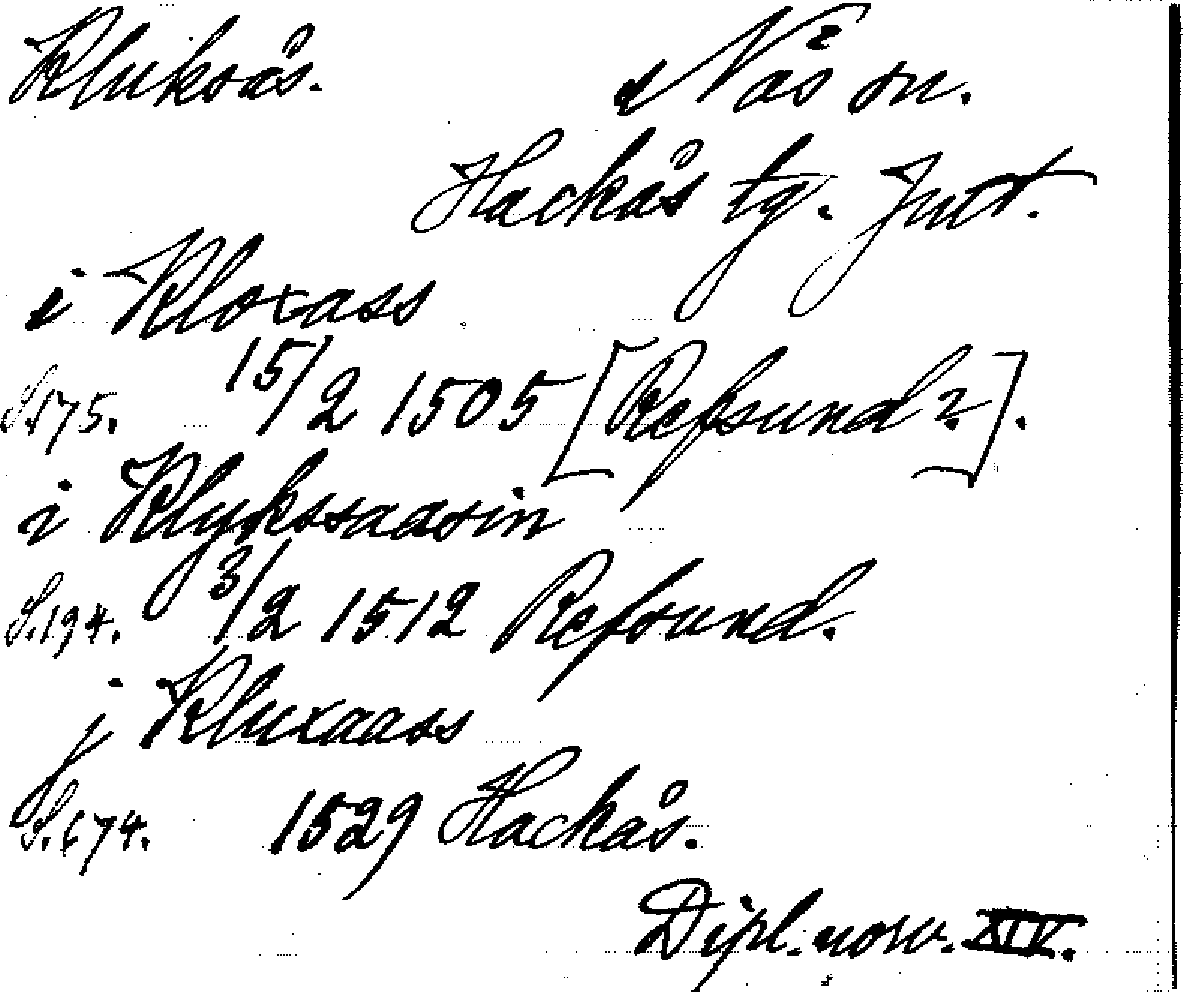 Kluksås. Näs sn.
Hackås tg. Jmtl.
i Kloxass
S.175. 15/2 1505 [Refsund?].
i Klykssaasin
S.194. 3/2 1512 Refsund.
j Kluxaass
S.674. 1529 Hackås.
Dipl. norv. XIV.